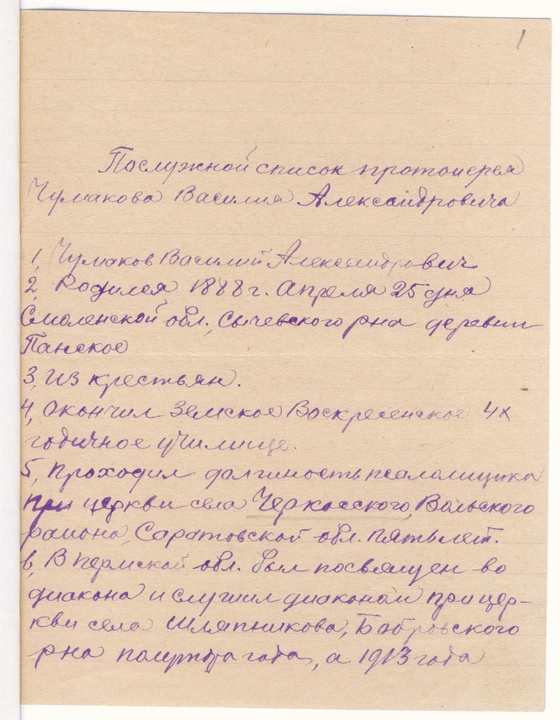 1
Послужной список протоиерея
Чумакова Василия Александровича
1, Чумаков Василий Александрович
2, Родился 1888 г. Апреля 25 дня
Смоленской обл., Сычевского р-на деревни
Панское
3, Из крестьян.
4, Окончил Земское Воскресенское 4х
годичное училище.
5, Проходил должность псаломщика
при церкви села Черкасского, Вольского
района, Саратовской обл. пять лет.
6, В Пермской обл. был посвящен во
диакона и служил диаконом при цер-
кви села Шляпникова, Бобровского
р-на полтора года, а 1913 года